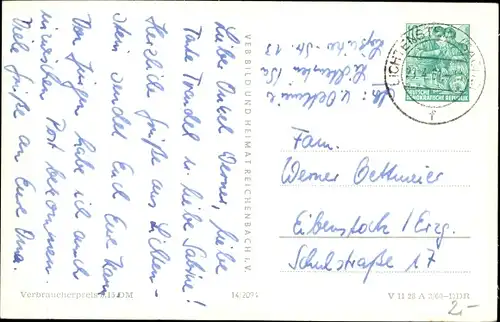 Lieber Onkel Werner, liebe
Tante Traudel u. liebe Sabine!
Herzliche Grüße aus Lichten-
stein sendet Euch Eure
Von Jürgen habe ich auch
Post bekommen.
Viele Grüße an Eure Oma.
VEB BILD UND HEIMAT REICHENBACH I. V.
Lichtenstein
13
LICHTENSTEIN
DEUTSCHE
DEMOKRATISCHE REPUBLIK
Fam.
Werner Oettmeier
Eibenstock / Erzg.
Schulstraße 17
Verbraucherpreis 0.15 DM
V 11 28 A 3/60-DDR
2,-